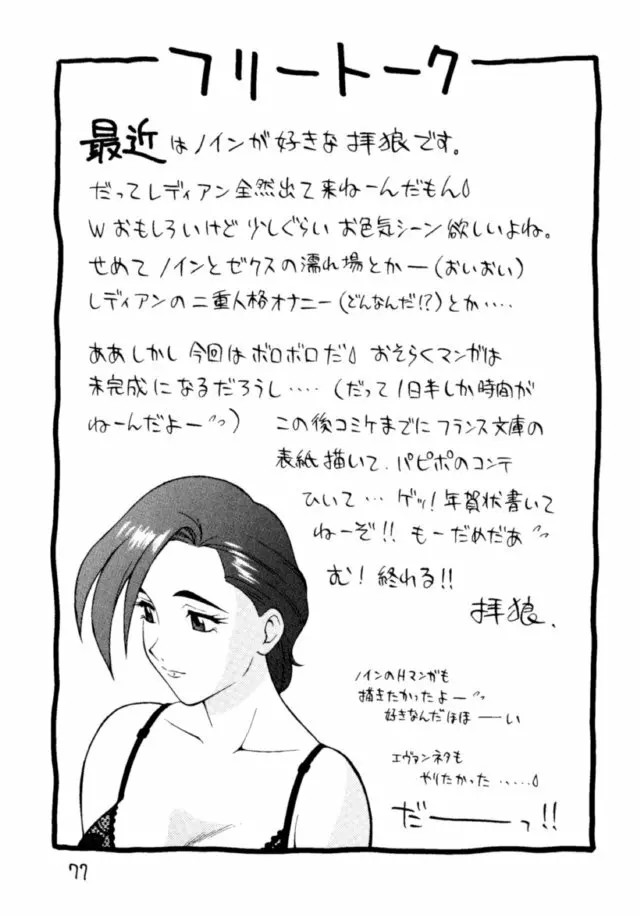 フリートーク
最近はノインが好きな拝狼です。
だってレディアン全然出て来ねーんだもん
Wおもしろいけど少しぐらいお色気シーン欲しいよね。
せめてノインとゼクスの濡れ場とかー(おいおい)
レディアンの二重人格オナニー(どんなんだ!?)とか‥‥
ああしかし今回はボロボロだ おそらくマンガは
未完成になるだろうし‥‥(だって1日半しか時間が
ねーんだよー)
この後コミケまでにフランス文庫の
表紙描いて、パピポのコンテ
ひいて…ゲッ!年賀状書いて
ねーぞ!!もーだめだあ
む!終れる!!
拝狼、
ノインのHマンガも
描きたかったよー
好きなんだほほーーい
エヴァンネタも
やりたかった‥‥‥
だーーーっ!!
77